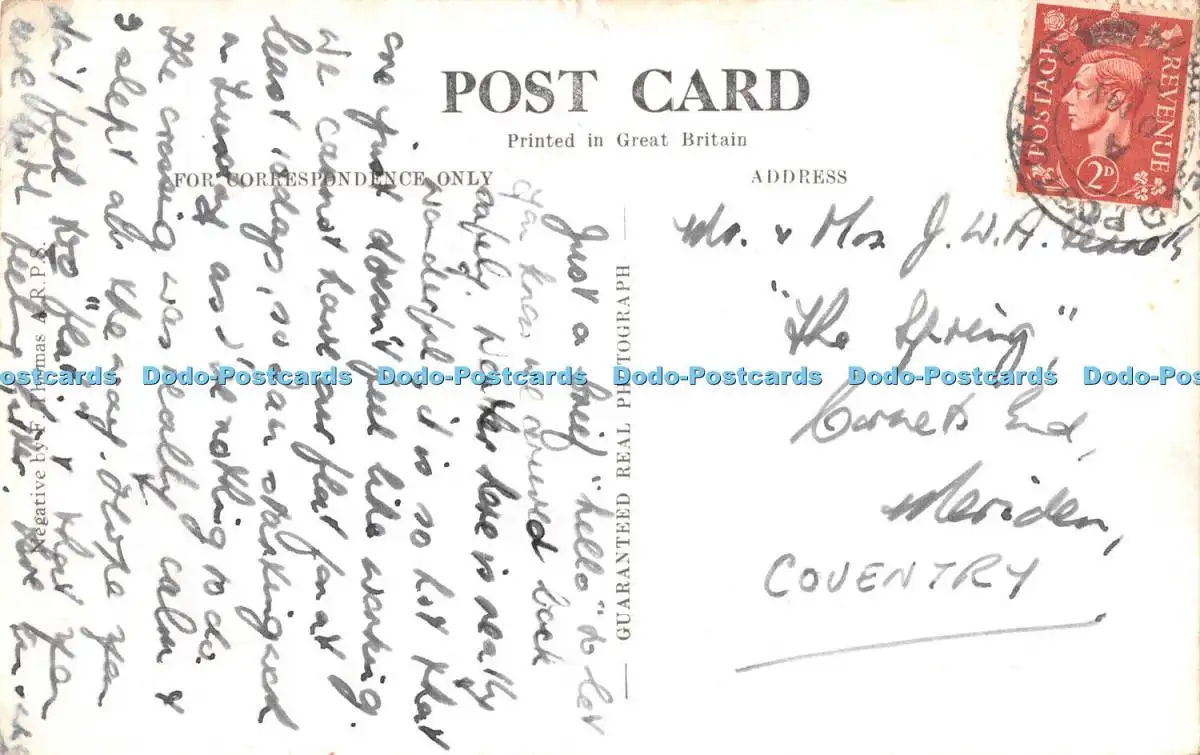 POST CARD
Printed in Great Britain
FOR CORRESPONDENCE ONLY
ADDRESS
POSTAGE REVENUE
2D
Just a brief "hello" to let
you know we arrived back
safely. Weather here is really
wonderful & it is so hot that
one just doesn't feel like working.
We cannot have our flat for at
least 10 days, so am starting work
on Tuesday as I've nothing to do.
The crossing was really calm &
I slept all the way. Hope you
don't feel too "flat" & that you
are both feeling fitter.
GUARANTEED REAL PHOTOGRAPH
Negative by F. Thomas A.R.P.S.
Mr. & Mrs J. W. A.
"The Spring",
Cornets End,
Meriden,
COVENTRY
Dodo-Postcards Dodo-Postcards Dodo-Postcards Dodo-Postcards Dodo-Postcards